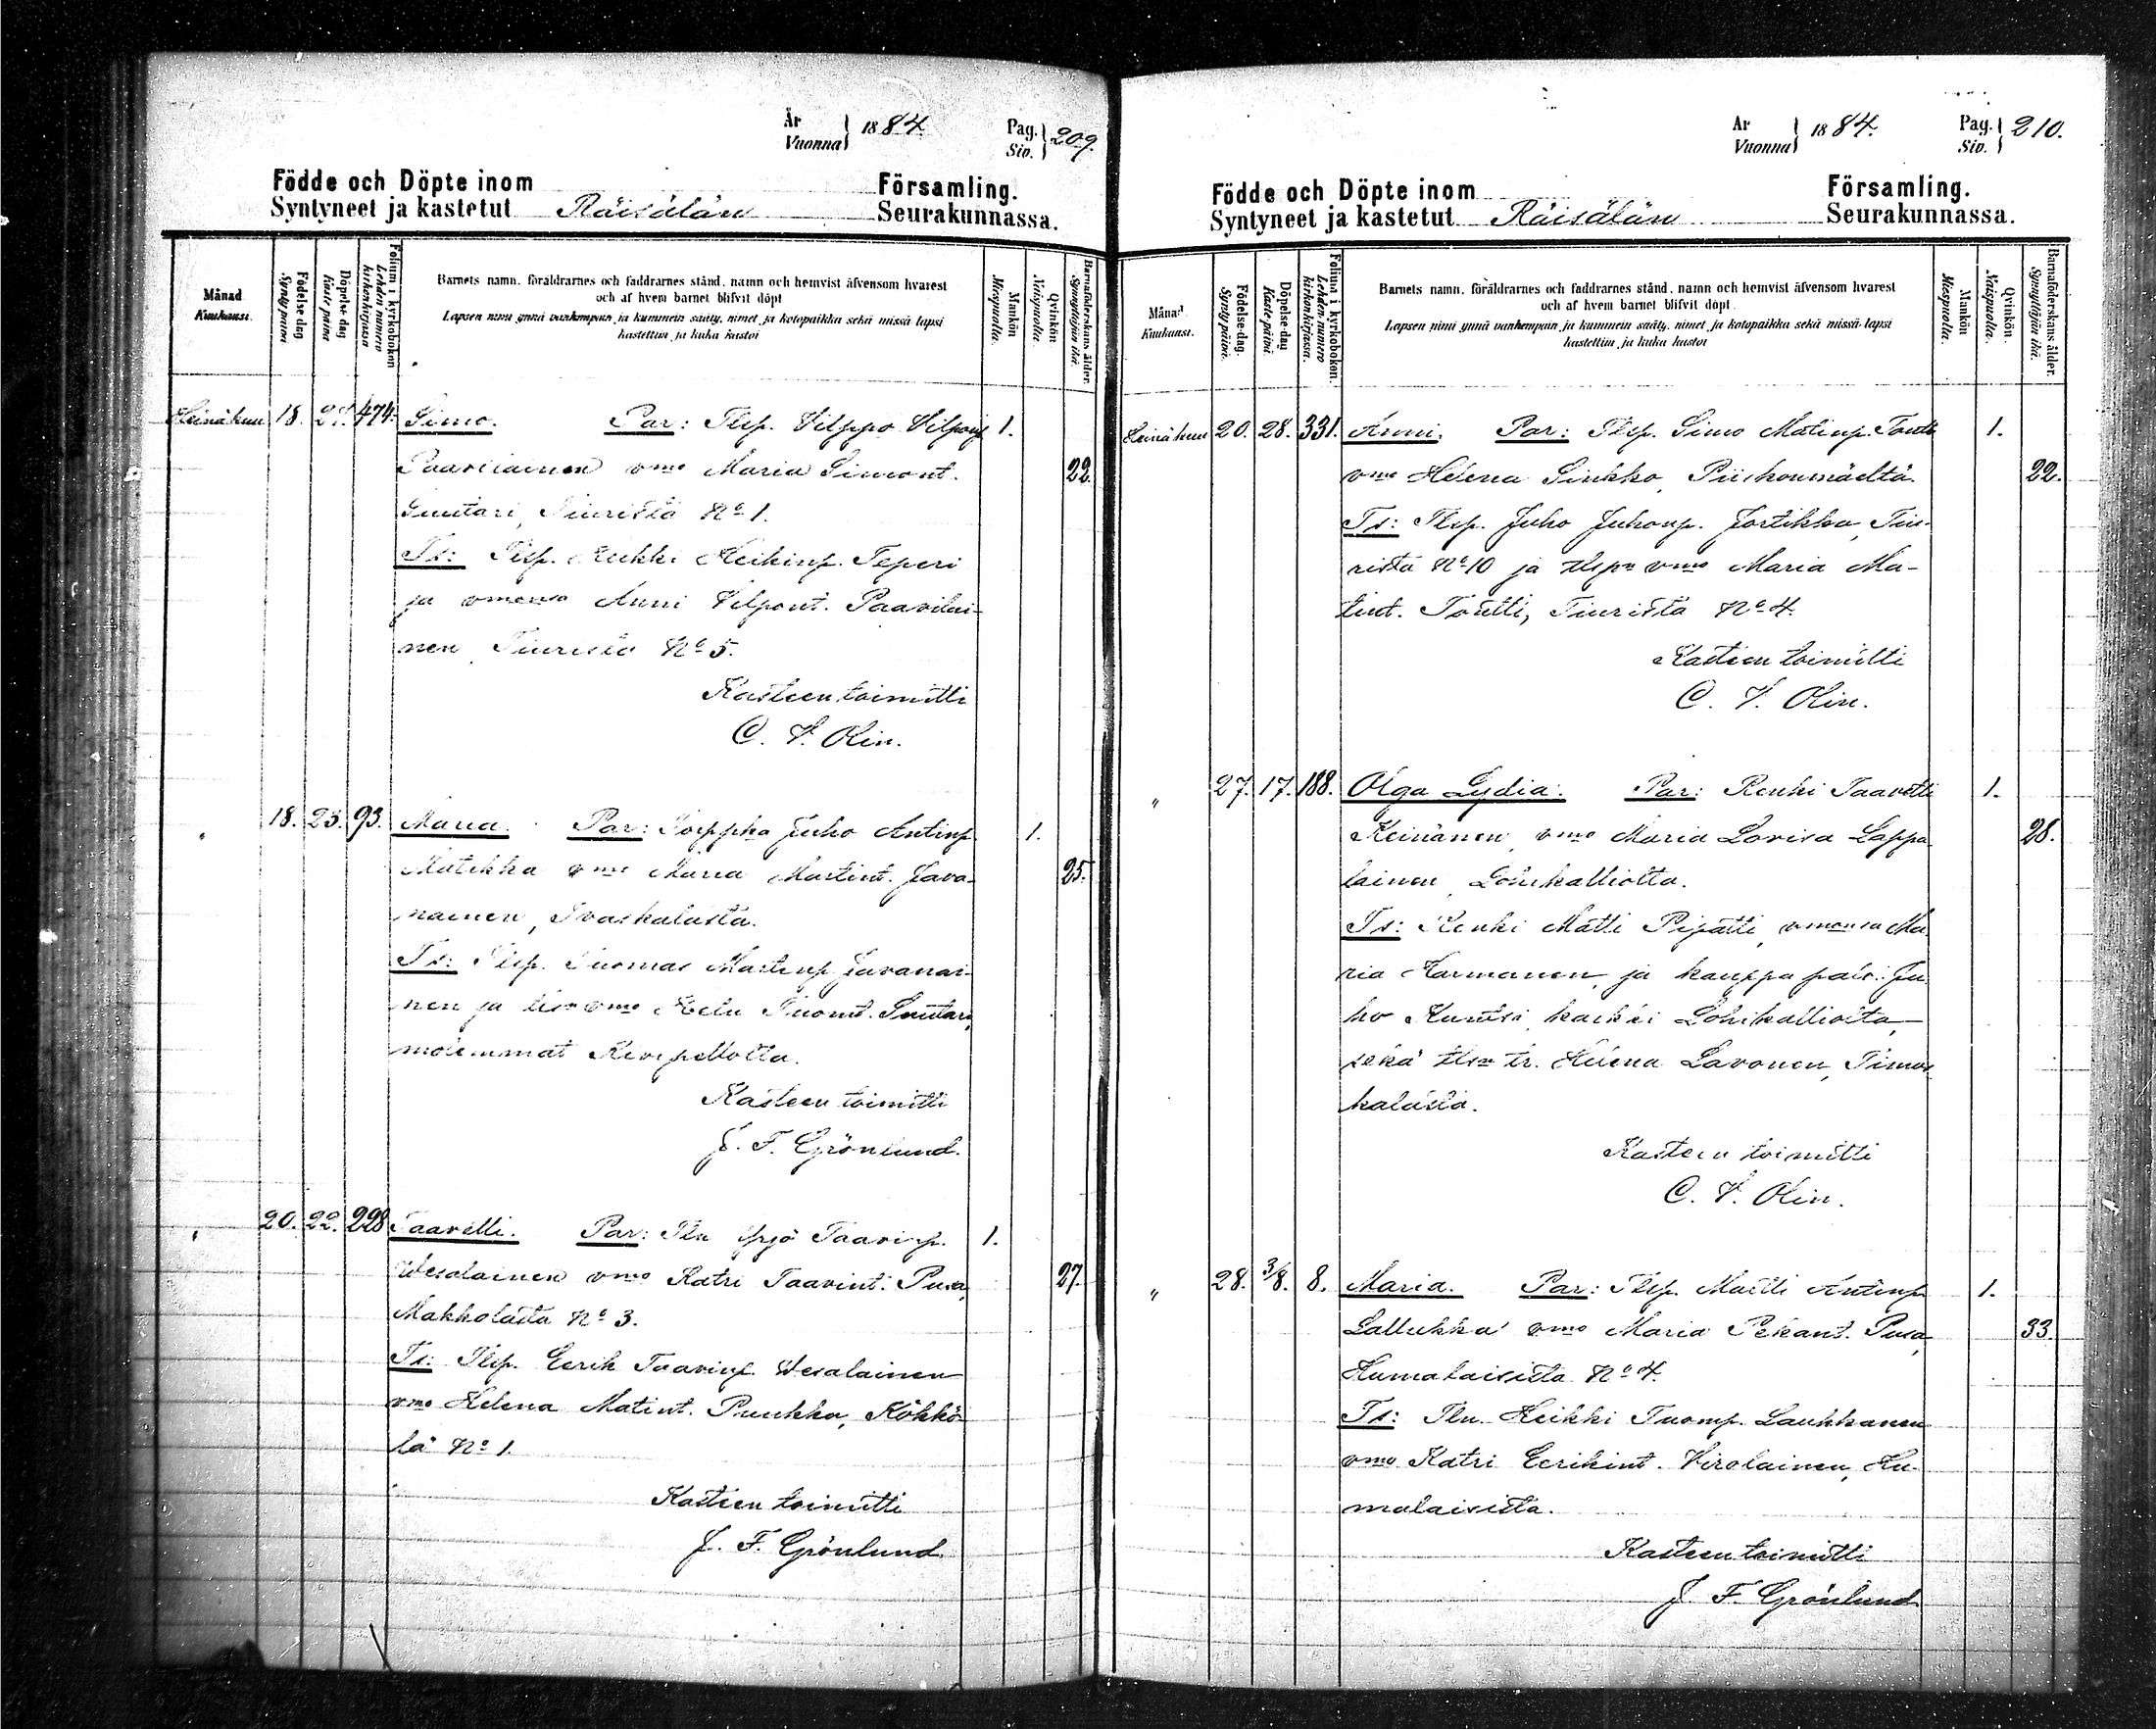 År Vuonna 1884. Pag. Siv. 209.
Födde och Döpte inom Församling.
Syntyneet ja kastetut Räisälän Seurakunnassa.
Månad Kuukausi.
Födelse dag Syntypäivä
Döpelse dag Kaste päivä
Folium i kyrkoboken Lehden numero kirkonkirjassa
Barnets namn, föräldrarnes och faddrarnes stånd, namn och hemvist äfvensom hvarest
och af hvem barnet blifvit döpt
Lapsen nimi ynnä vanhempain ja kummein sääty, nimet ja kotopaikka sekä missä lapsi
kastettiin ja kuka kastoi
Mankön Miespuolta.
Qvinkön Naispuolta
Barnaföderskans ålder. Synnyttäjän ikä.
Heinäkuu 18. 474. Simo. Par: Tlsp. Vilppo Vilponp. 1.
Paavilainen vmo Maria Simont. 22.
Suutari, Tiurista No 1.
Ts: Tlsp. Heikki Heikinp. Teperi
ja vmonsa Anni Vilpont. Paavilai-
nen, Tiurista No 5.
Kasteen toimitti
C. V. Olin.
" 18. 23. 93. Maria. Par: Juho Antinp. 1.
Matikka vmo Maria Martint. Java- 25.
nainen, Ivaskalasta.
Ts: Tlsp. Tuomas Martinp. Javanai-
nen ja vmo Tuomt. Suutari,
molemmat
Kasteen toimitti
J. F. Grönlund.
" 20. 22. 228 Taavetti. Par: Tln Yrjö Taavinp. 1.
Wesalainen vmo Katri Taavint. Pusa, 27.
Makkolasta No 3.
Ts: Tlsp. Eerik Taavinp. Wesalainen
vmo Helena Matint. Puukka, Kökkö-
lä No 1.
Kasteen toimitti
J. F. Grönlund
År Vuonna 1884. Pag. Siv. 210.
Födde och Döpte inom Församling.
Syntyneet ja kastetut Räisälän Seurakunnassa.
Månad Kuukausi.
Födelse-dag. Syntypäivä.
Döpelse-dag Kaste-päivä
Folium i kyrkoboken. Lehden numero kirkonkirjassa.
Barnets namn, föräldrarnes och faddrarnes stånd, namn och hemvist äfvensom hvarest
och af hvem barnet blifvit döpt
Lapsen nimi ynnä vanhempain ja kummein sääty, nimet ja kotopaikka sekä missä lapsi
kastettiin ja kuka kastoi
Mankön Miespuolta.
Qvinkön. Naispuolta.
Barnaföderskans ålder. Synnyttäjän ikä.
Heinäkuu 20. 28. 331. Anni. Par: Tlsp. Simo Matinp. Toutti 1.
vmo Helena Sinkko, Piiskonmäeltä. 22.
Ts: Tlsp. Juho Juhonp. Jortikka, Tiu-
rista No 10 ja tlspn vmo Maria Ma-
tint. Toutti, Tiurista No 4.
Kasteen toimitti
C. V. Olin.
" 27. 17. 188. Olga Lydia. Par: Renki Taavetti 1.
Keinänen, vmo Maria Lovisa Lappa- 28.
lainen, Lohikalliolta.
Ts: Renki Matti Pijatti, vmonsa Ma-
ria Karmanen, ja kauppapalv: Ju-
ho Kuntsi, kaikki Lohikalliolta,
sekä tlsn tr. Helena Lavonen, Timos-
kalasta.
Kasteen toimitti
C. V. Olin.
" 28. 3/8. 8. Maria. Par: Tlsp. Martti Antinp. 1.
Lallukka vmo Maria Pekant. Pusa, 33.
Humalaisista No 4.
Ts: Tln. Heikki Tuomp. Laukkanen
vmo Katri Eerikint. Virolainen, Hu-
malaisista.
Kasteen toimitti
J. F. Grönlund